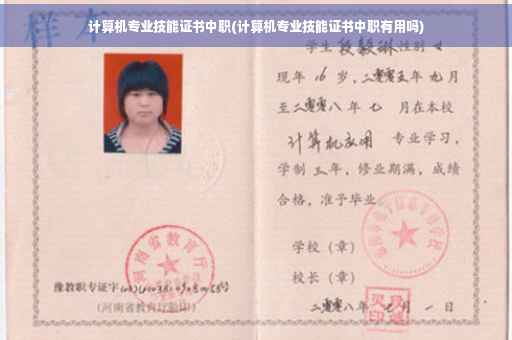 计算机专业技能证书中职(计算机专业技能证书中职有用吗)
样本
学生 段毅琳 性别 女
现年 16 岁，二零零五年 九月
至二零零八年 七 月在本校
计算机应用 专业学习，
学制 三年，修业期满，成绩
合格，准予毕业
学校（章）
校长（章）
二零零八年 七月 一日
河南省教育厅
豫教职专证字
(河南省教育厅验印)